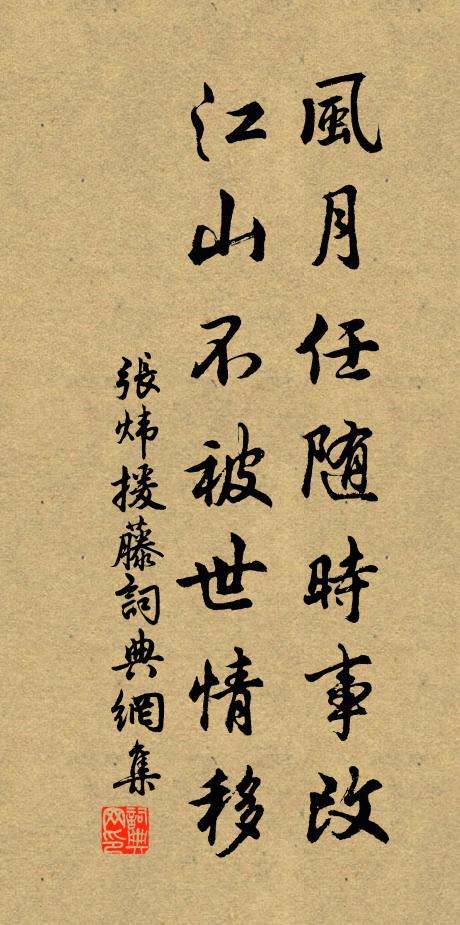 風月任随時事改
江山不被世情移
張煒援藤詞典網集
詞典网印